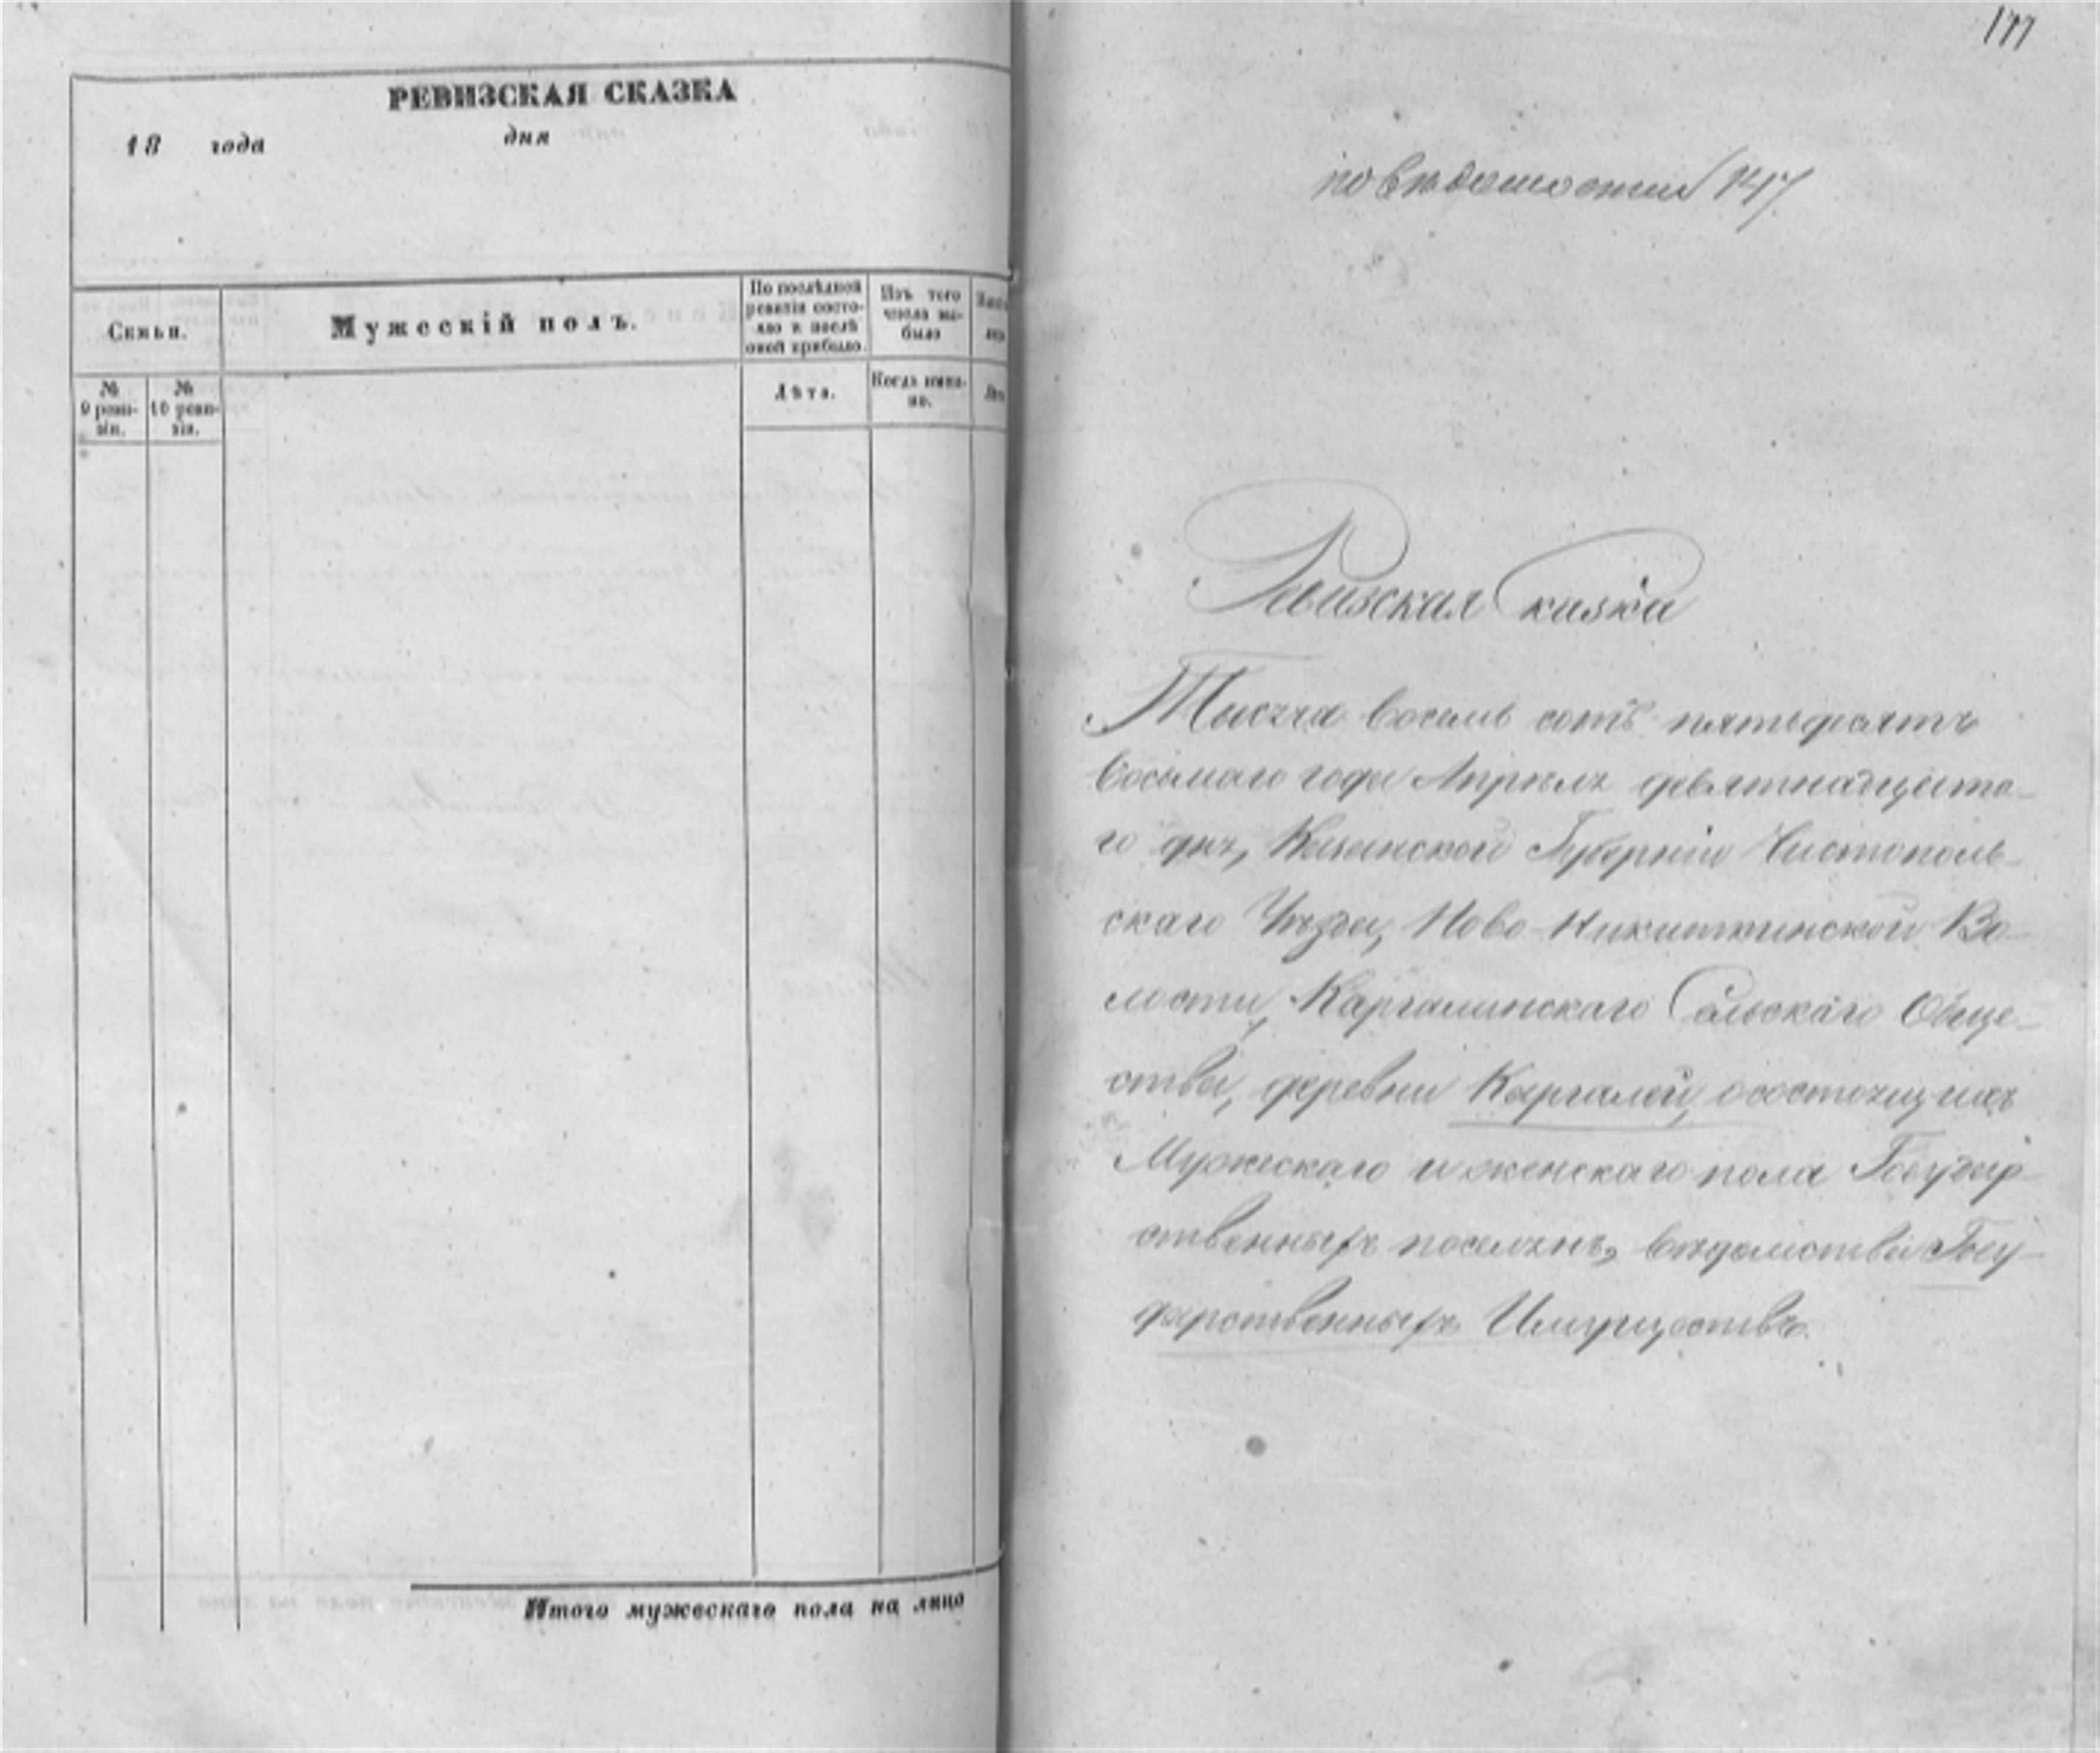 РЕВИЗСКАЯ СКАЗКА
18 года дня
Семьи.
№ 9 реви-
зіи.
№ 10 реви-
зіи.
Мужескій полъ.
По послѣдней
ревизіи состо-
яло и послѣ
оной прибыло.
Лѣта.
Изъ того
числа вы-
было
Когда имен-
но.
Итого мужескаго пола на лицо
177
по вѣдомости 147
Ревизская сказка
Тысяча восемь сотъ пятьдесятъ
восьмаго года Апрѣля девятнадцата-
го дня, Казанской Губерніи Чистополь-
скаго Уѣзда, Ново-Никиткинской Во-
лости, Каргалинскаго Сельскаго Обще-
ства, деревни Каргалей, о состоящихъ
Мужескаго и женскаго пола Государ-
ственныхъ поселянъ, вѣдомства Госу-
дарственныхъ Имуществъ.